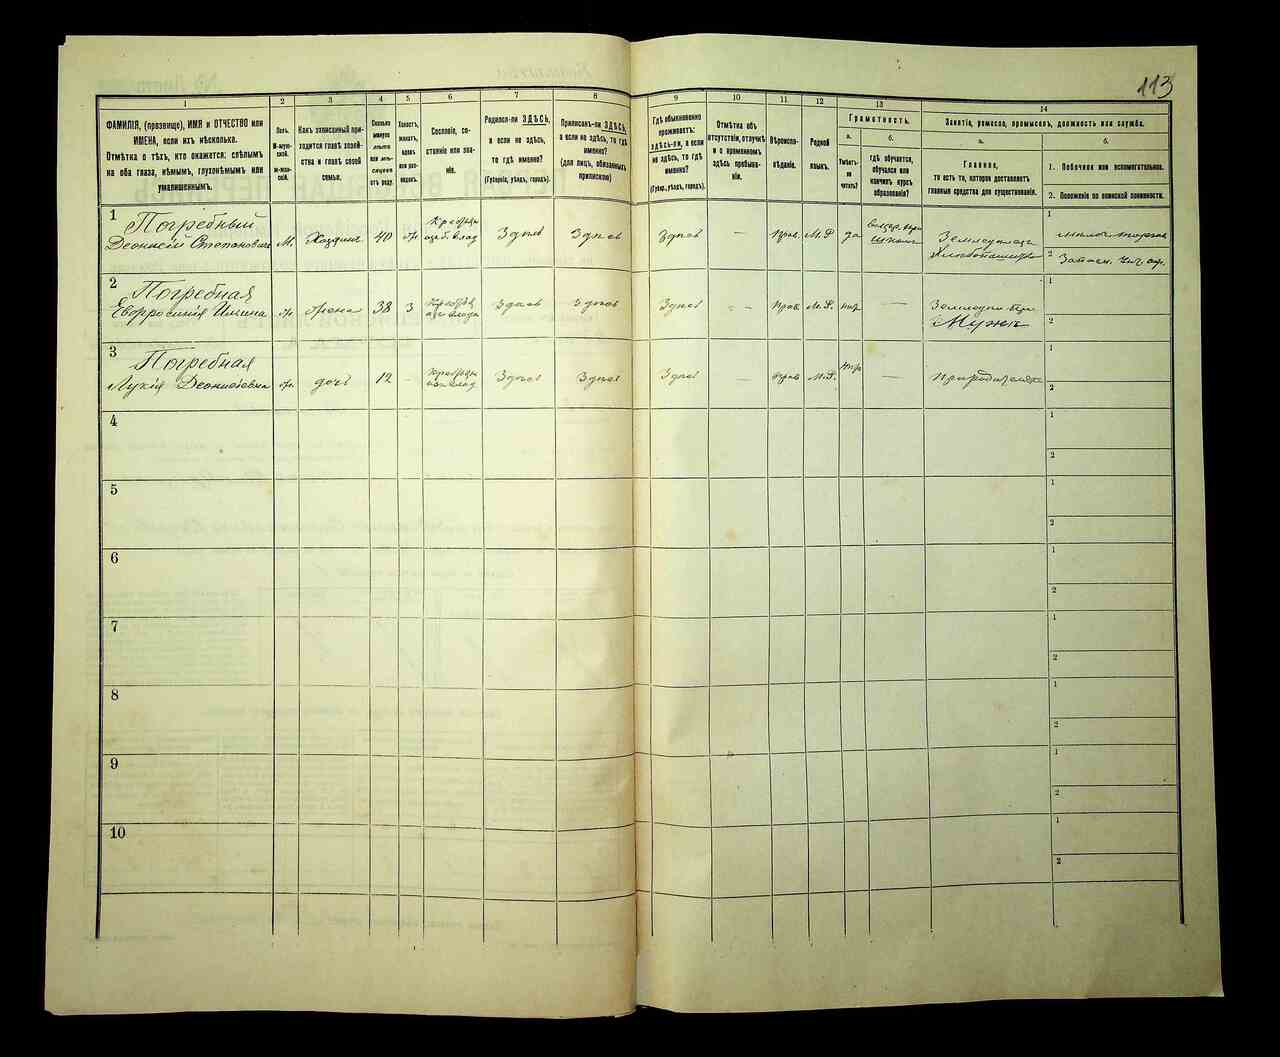 113
1
2
3
4
5
6
7
8
9
10
11
12
13
14
ФАМИЛІЯ, (прозвище), ИМЯ и ОТЧЕСТВО или
ИМЕНА, если ихъ нѣсколько.
Отмѣтка о тѣхъ, кто окажется: слѣпымъ
на оба глаза, нѣмымъ, глухонѣмымъ или
умалишеннымъ.
Полъ.
М-мужской.
Ж-женскій.
Какъ записанный при-
ходится главѣ хозяй-
ства и главѣ своей
семьи.
Сколько
минуло
лѣтъ
или мѣ-
сяцевъ
отъ роду.
Холостъ,
женатъ,
вдовъ
или раз-
веденъ.
Сословіе, со-
стояніе или зва-
ніе.
Родился-ли ЗДѢСЬ,
а если не здѣсь,
то гдѣ именно?
(Губернія, уѣздъ, городъ).
Приписанъ-ли ЗДѢСЬ,
а если не здѣсь, то гдѣ
именно?
(для лицъ, обязанныхъ
припискою)
Гдѣ обыкновенно
проживаетъ:
здѣсь-ли, а если
не здѣсь, то гдѣ
именно?
(Губер., уѣздъ, городъ).
Отмѣтка объ
отсутствіи, отлучкѣ
и о временномъ
здѣсь пребыва-
ніи.
Вѣроиспо-
вѣданіе.
Родной
языкъ.
Грамотность.
а.
Умѣетъ-
ли
читать?
б.
гдѣ обучается,
обучался или
кончилъ курсъ
образованія?
Занятіе, ремесло, промыселъ, должность или служба.
а.
Главное,
то есть то, которое доставляетъ
главныя средства для существованія.
б.
1. Побочное или вспомогательное.
2. Положеніе по воинской повинности.
1
Погребный
Деонисій Степановичъ
М.
Хозяинъ
40
Здѣсь
Здѣсь
Здѣсь
—
Прав.
М. Р.
да
школа
1
2
2
Погребная
Евфросинія
Жена
38
З
Здѣсь
Здѣсь
Здѣсь
—
Прав.
М. Р.
—
Мужъ
1
2
3
Погребная
Лукія Деонисіевна
дочь
12
-
Здѣсь
Здѣсь
Здѣсь
—
Прав.
М. Р.
—
1
2
4
1
2
5
1
2
6
1
2
7
1
2
8
1
2
9
1
2
10
1
2